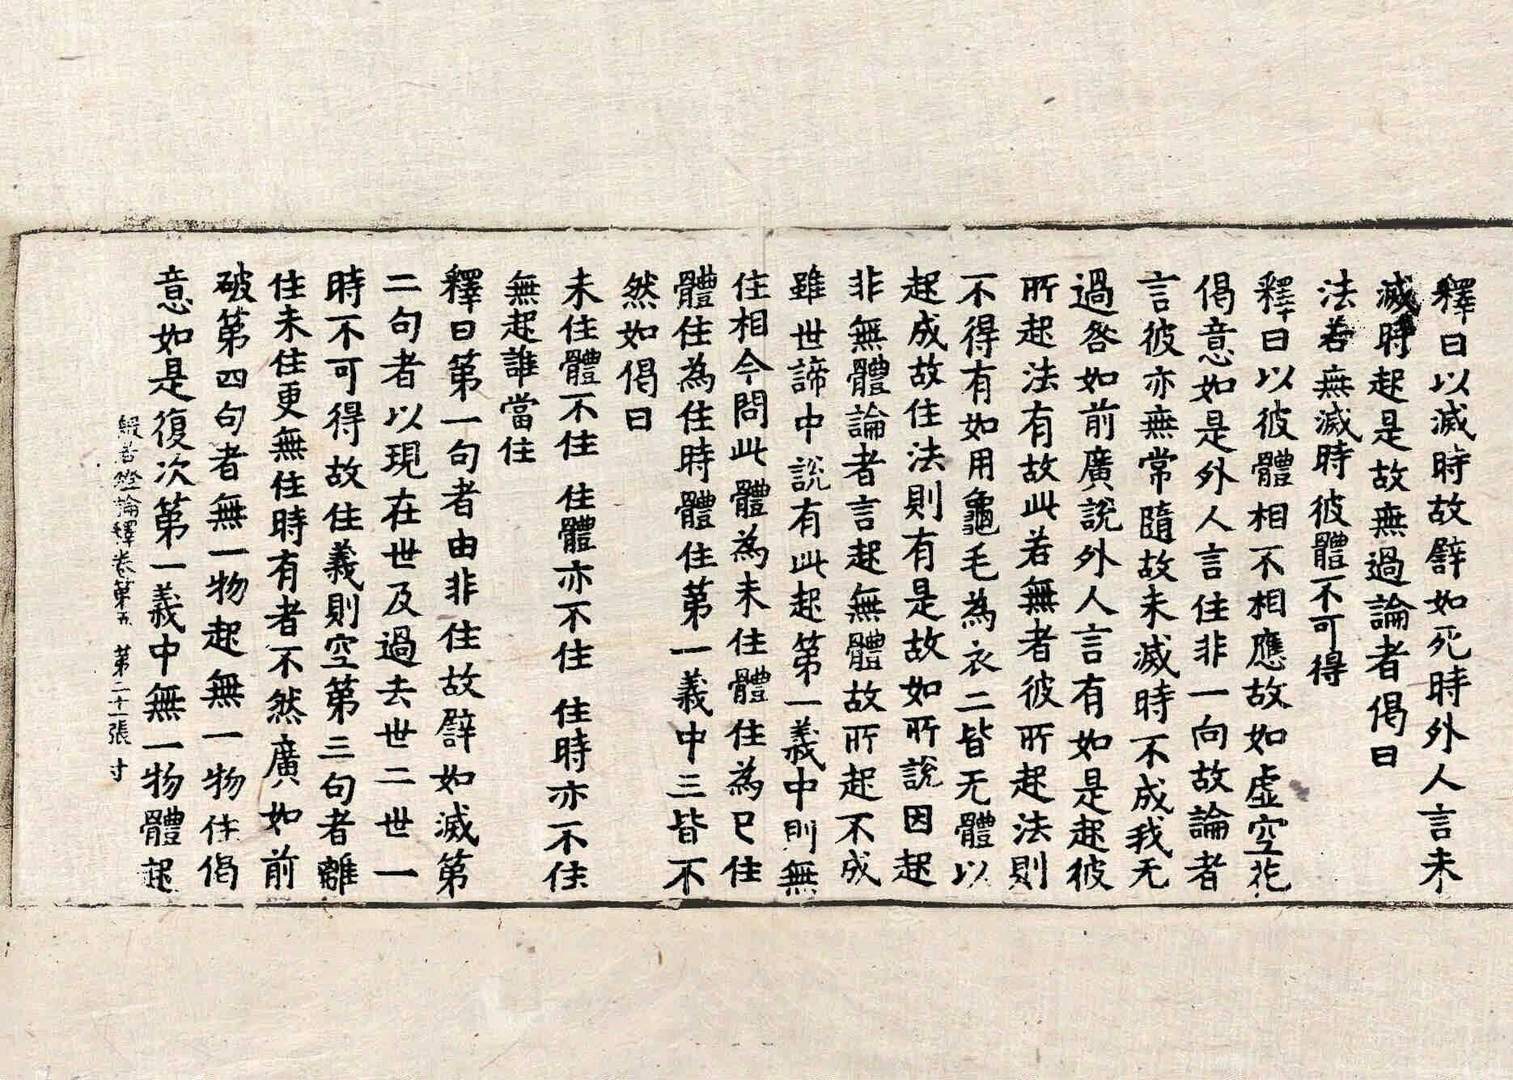 釋曰以滅時故譬如死時外人言未
滅時起是故無過論者偈曰
法若無滅時彼體不可得
釋曰以彼體相不相應故如虛空花
偈意如是外人言住非一向故論者
言彼亦無常隨故未滅時不成我无
過咎如前廣說外人言有如是起彼
所起法有故此若無者彼所起法則
不得有如用龜毛為衣二皆无體以
起成故住法則有是故如所說因起
非無體論者言起無體故所起不成
雖世諦中說有此起第一義中則無
住相今問此體為未住體住為已住
體住為住時體住第一義中三皆不
然如偈曰
未住體不住 住體亦不住 住時亦不住
無起誰當住
釋曰第一句者由非住故譬如滅第
二句者以現在世及過去世二世一
時不可得故住義則空第三句者離
住未住更無住時有者不然廣如前
破第四句者無一物起無一物住偈
意如是復次第一義中無一物體起
般若燈論釋卷第五 第二十一張 寸